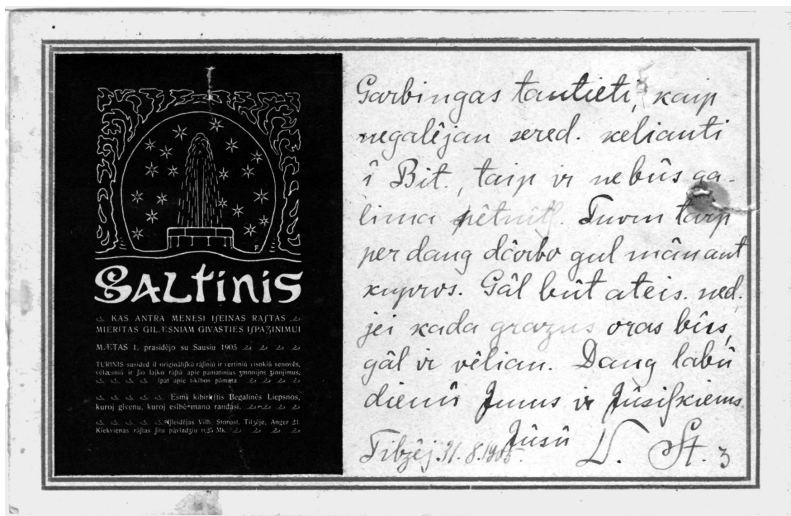 ŠALTINIS
KAS ANTRA MENESI IſEINAS RAſTAS
MIERITAS GILÆSNIAM GIVASTIES IſPAŽINIMUI
MÆTAS 1. prasidėjo su Sausiu 1905
TURINIS susided iſ originališkū rāſiniū ir vertiniū visokiū senovės,
vėlæsniū ir ſio laiko rāſtū apie
ipat apie tikibos pāmata.
Esmā kibirkſtis Begalinės Liepsnos,
kuroj givenu, kuroj esibe-mano randāsi.
Iſleidėjas Vilh. Storost, Tilžėje, Anger 21.
Kiekvienas rāſtas ſitu pavidžiu 0,25 Mk.
Garbingas tautieti, kaip
negalėjau sered. keliauti
î Bit., taip ir nebûs ga-
lima pêtničî. Turu taip
per daug dârbo gul mân ant
kupros. Gâl bût ateis. ned.
jei kada grazus oras bûs,
gâl ir vêliau. Daug labû
dienû Jums ir Jûsiſkiems.
Jûsû
Tilžėj. 31.8.1905. V. St. z